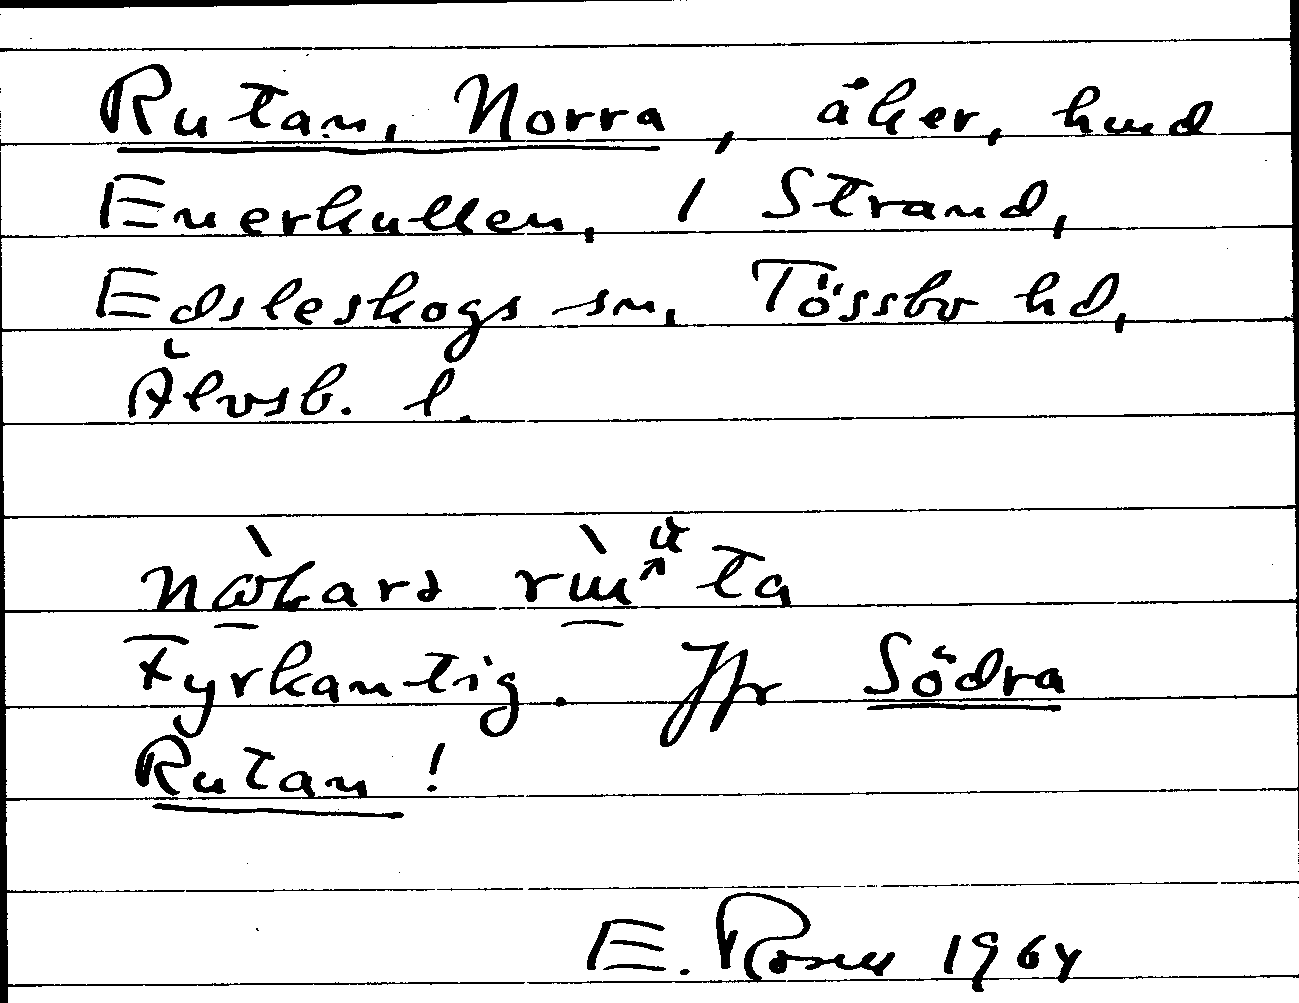 Rutan, Norra, åker, hmd
Enerkullen, 1 Strand,
Edsleskogs sn, Tössbo hd,
Älvsb. l.
Fyrkantig. Jfr Södra
Rutan!
E. Rosen 1964